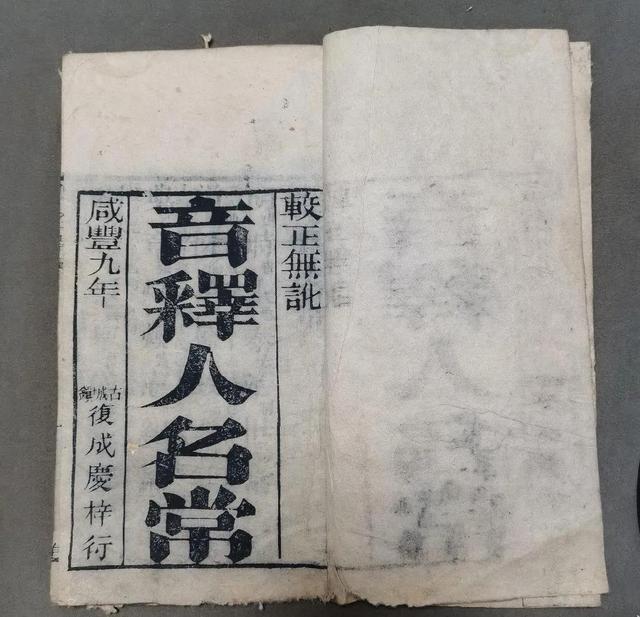 較正無訛
音釋人名常
咸豐九年
古城鎮
復成慶梓行